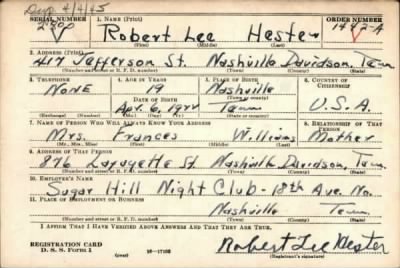 Dup 4/4/45
SERIAL NUMBER 1. NAME (Print) ORDER NUMBER
Robert Lee Hester
(First) (Middle) (Last)
2. ADDRESS (Print)
417 Jefferson St. Nashville Davidson, Tenn
(Number and street or R. F. D. number) (Town) (County) (State)
3. TELEPHONE 4. AGE IN YEARS 5. PLACE OF BIRTH 6. COUNTRY OF CITIZENSHIP
NONE 19 Nashville
(Town or county)
DATE OF BIRTH
Apr. 6, Tenn U.S.A.
(Exchange) (Number) (Mo.) (Day) (Yr.) (State or country)
7. NAME OF PERSON WHO WILL ALWAYS KNOW YOUR ADDRESS 8. RELATIONSHIP OF THAT PERSON
Mrs. Frances Williams Mother
(Mr., Mrs., Miss) (First) (Middle) (Last)
9. ADDRESS OF THAT PERSON
876 Lafayette St. Nashville Davidson, Tenn
(Number and street or R. F. D. number) (Town) (County) (State)
10. EMPLOYER'S NAME
Sugar Hill Night Club - 18th Ave. No.
11. PLACE OF EMPLOYMENT OR BUSINESS
Nashville Tenn.
(Number and street or R. F. D. number) (Town) (County) (State)
I AFFIRM THAT I HAVE VERIFIED ABOVE ANSWERS AND THAT THEY ARE TRUE.
REGISTRATION CARD
D. S. S. Form 1
(over)
Robert Lee Hester
(Registrant's signature)